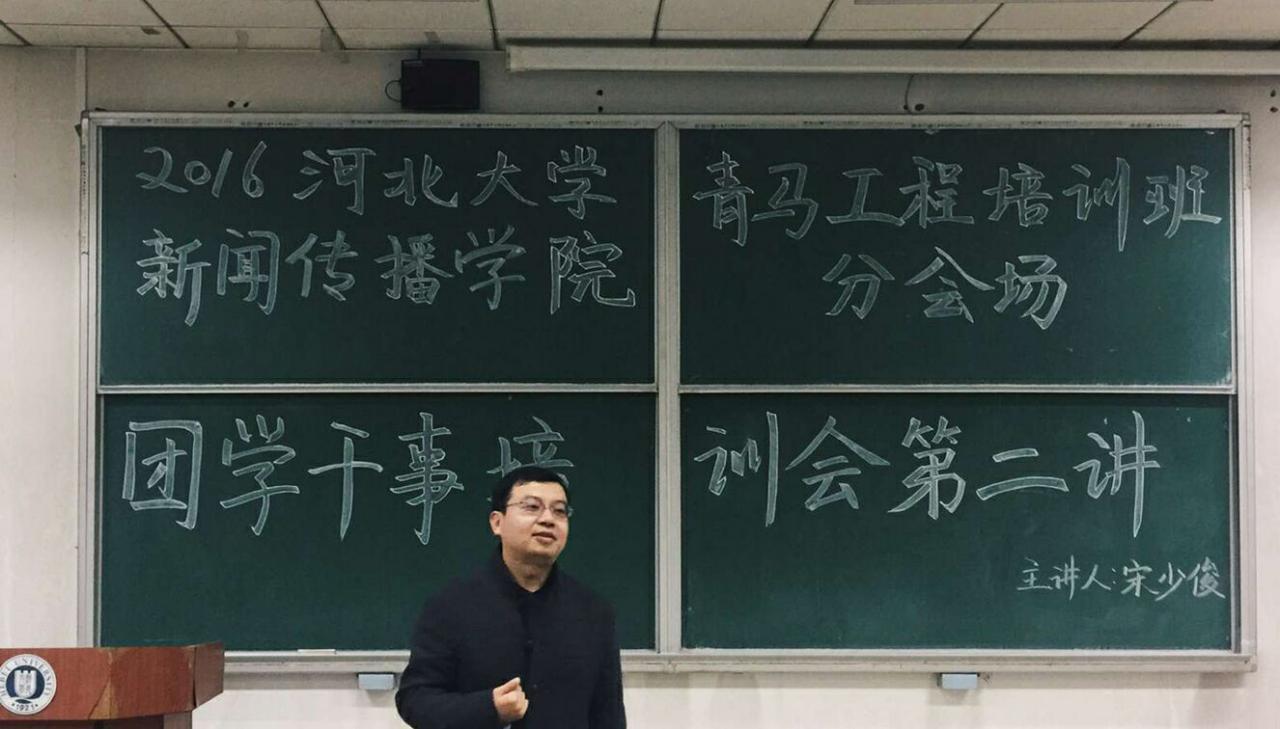 2016 河北大学
新闻传播学院
青马工程培训班
分会场
团学干事培
训会第二讲
主讲人:宋少俊
1921